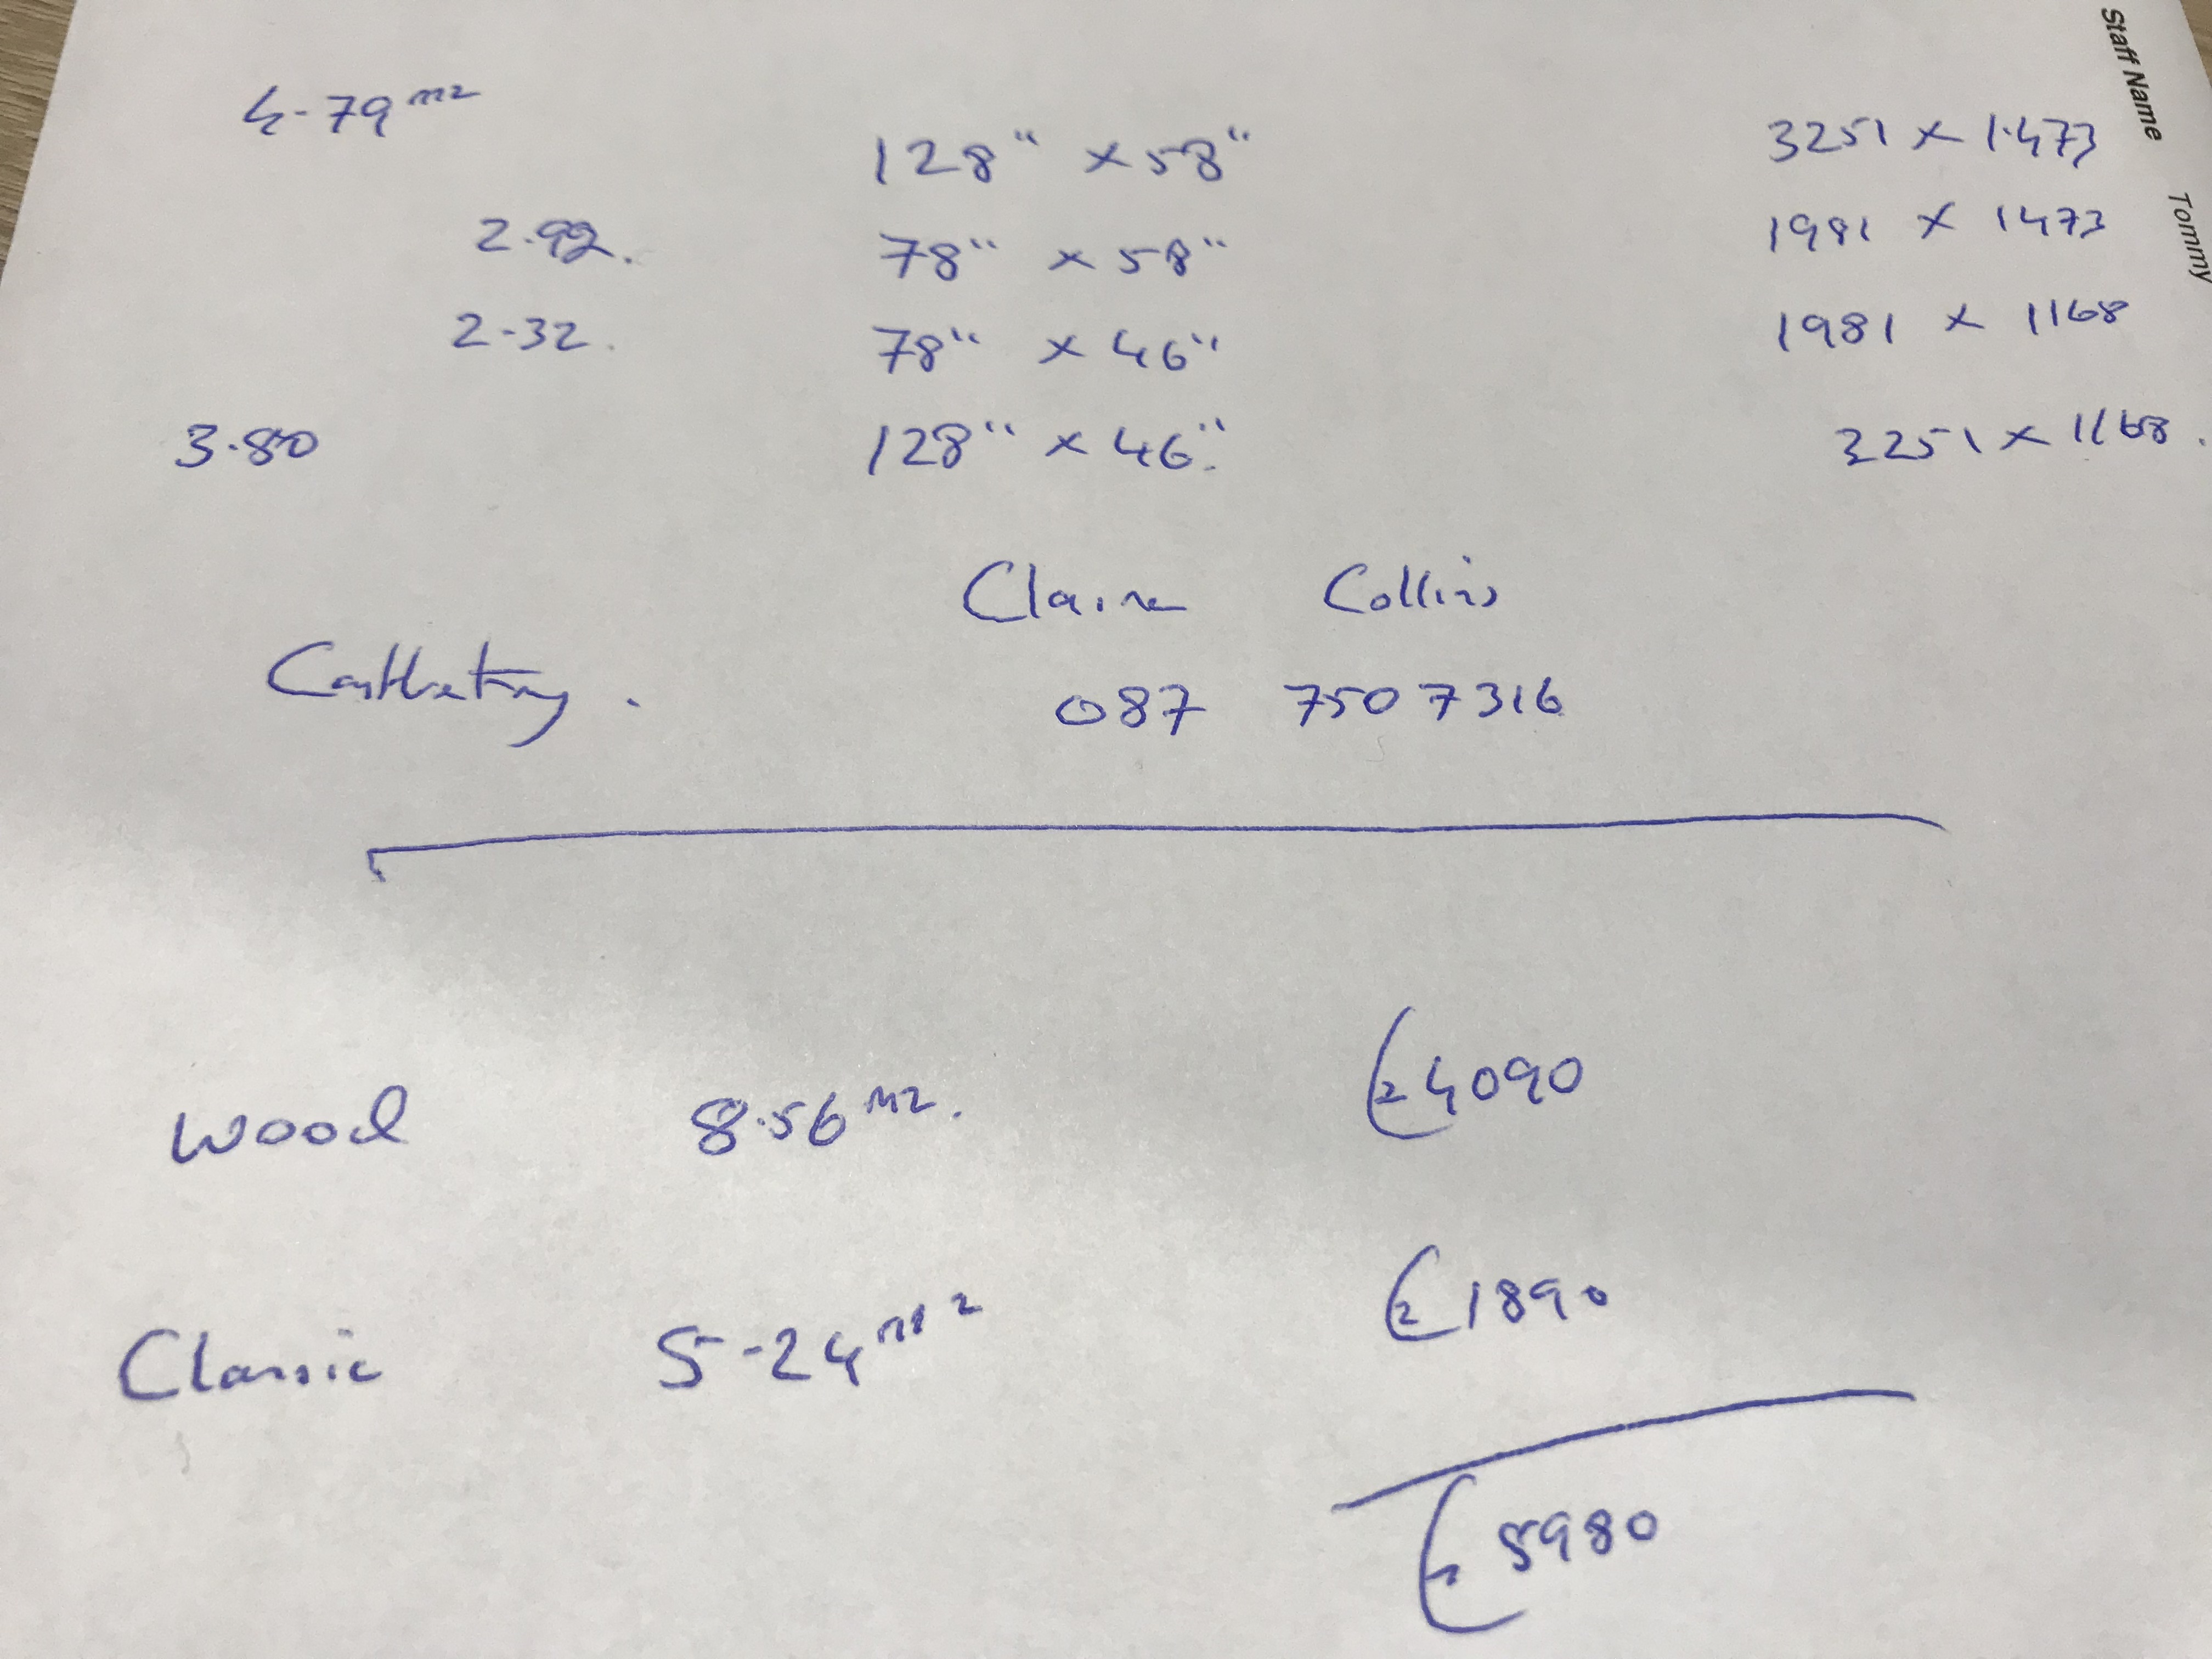 Staff Name Tommy
4-79 m2 128" x 58" 3251 x 1.473
2.92. 78" x 58" 1981 x 1473
2-32. 78" x 46" 1981 x 1168
3.80 128" x 46" 3251 x 1168.
Claire Collins
087 7507316
Wood 8.56 m2. €4090
Classic 5-24 m2 €1890
€5980